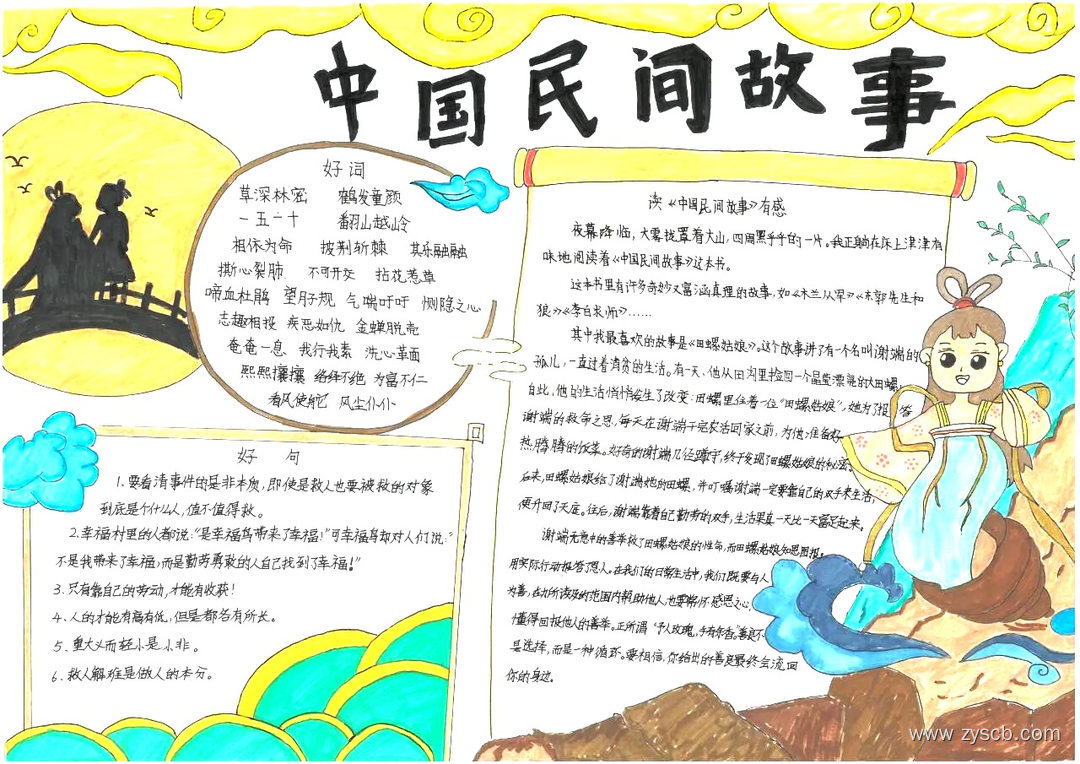 中国民间故事
好词
草深林密 鹤发童颜
一五一十 翻山越岭
相依为命 披荆斩棘 其乐融融
撕心裂肺 不可开交 拈花惹草
啼血杜鹃 望子规 气喘吁吁 恻隐之心
志趣相投 疾恶如仇 金蝉脱壳
奄奄一息 我行我素 洗心革面
熙熙攘攘 络绎不绝 为富不仁
看风使舵 风尘仆仆
好 句
1.要看清事件的是非本质,即使是救人也要被救的对象
到底是什么人,值不值得救。
2.幸福村里的人都说:"是幸福鸟带来了幸福!"可幸福鸟却对人们说:"
不是我带来了幸福,而是勤劳勇敢的人自己找到了幸福!"
3.只有靠自己的劳动,才能有收获!
4.人的才能有高有低,但是都各有所长。
5.重大义而轻小是小非。
6.救人解难是做人的本分。
读《中国民间故事》有感
夜幕降临,大雾笼罩着大山,四周黑乎乎的一片。我正躺在床上津津有
味地阅读着《中国民间故事》这本书。
这本书里有许多奇妙又富涵真理的故事,如《木兰从军》《东郭先生和
狼》《李白求师》……
其中我最喜欢的故事是《田螺姑娘》。这个故事讲了有一个名叫谢端的
孤儿,一直过着清贫的生活。有一天,他从田沟里捡回一个晶莹漂亮的大田螺,
自此,他的生活悄悄发生了改变:田螺里住着一位"田螺姑娘",她为了报答
谢端的救命之恩,每天在谢端干完农活回家之前,为他准备好
热腾腾的饭菜。好奇的谢端几经蹲守,终于发现了田螺姑娘的秘密。
后来,田螺姑娘给了谢端她的田螺,并叮嘱谢端一定要靠自己的双手来生活,
便升回了天庭。往后,谢端靠着自己勤劳的双手,生活果真一天比一天富足起来。
谢端无意中的善举救了田螺姑娘的性命,而田螺姑娘知恩图报,
用实际行动报答了恩人。在我们的日常生活中,我们既要与人
为善,在力所能及的范围内帮助他人,也要常怀感恩之心,
懂得回报他人的善举。正所谓"予人玫瑰,手有余香"善良不
是选择,而是一种循环。要相信,你给出的善良最终会流回
你的身边。
www.zyscb.com